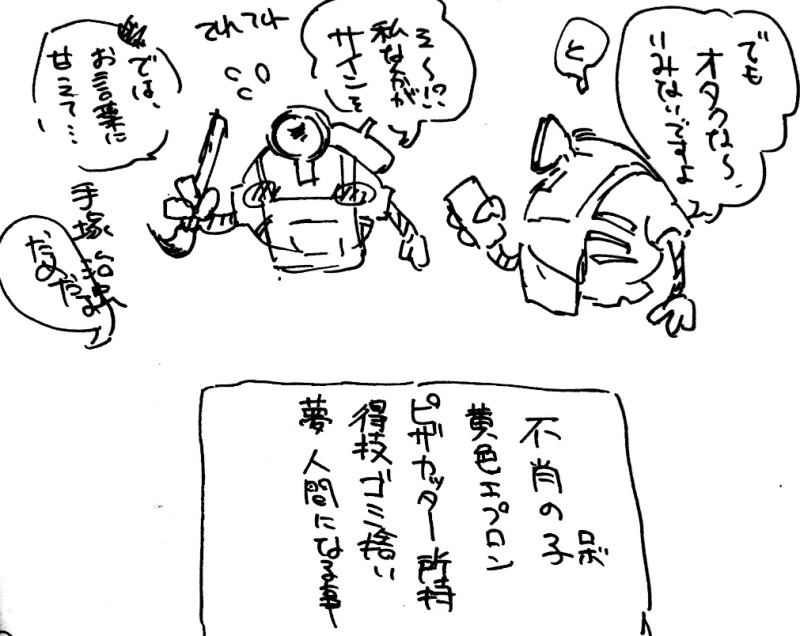 でも
オタクな〜、
いみないですよ
と
え〜!?
私なかが
サインを
てれてれ
では、
お言葉に
甘えて…
手塚治虫
だめだよ
不肖の子
ロボ
黄色エプロン
ピザカッター所持
得技ゴミ捨い
夢人間になる事